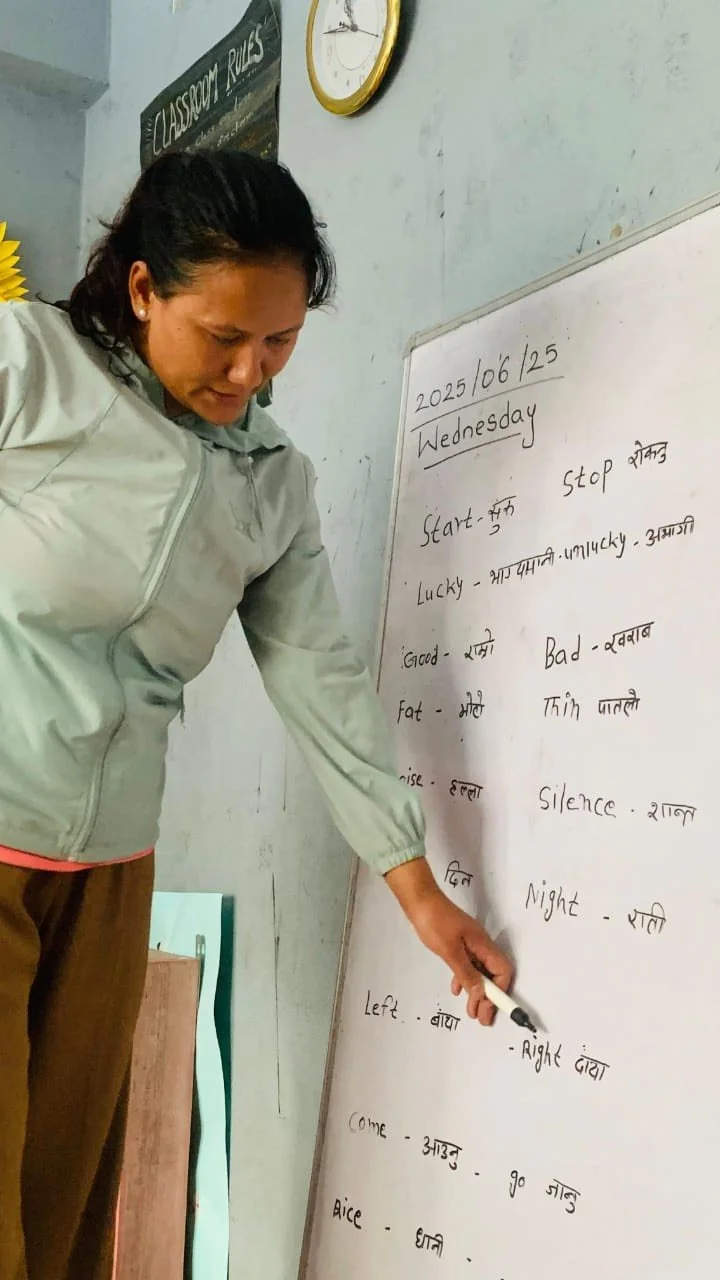 CLASSROOM RULES
2025/06/25
Wednesday
Start - सुरु Stop रोक्नु
Lucky - भाग्यमानी - unlucky - अभागी
Good - राम्रो Bad - खराब
Fat - मोटो Thin पातलो
oise - हल्ला Silence - शान्त
दिन Night - राती
Left - बाँया - Right दाँया
Come - आउनु - go जानु
Rice - धानी -